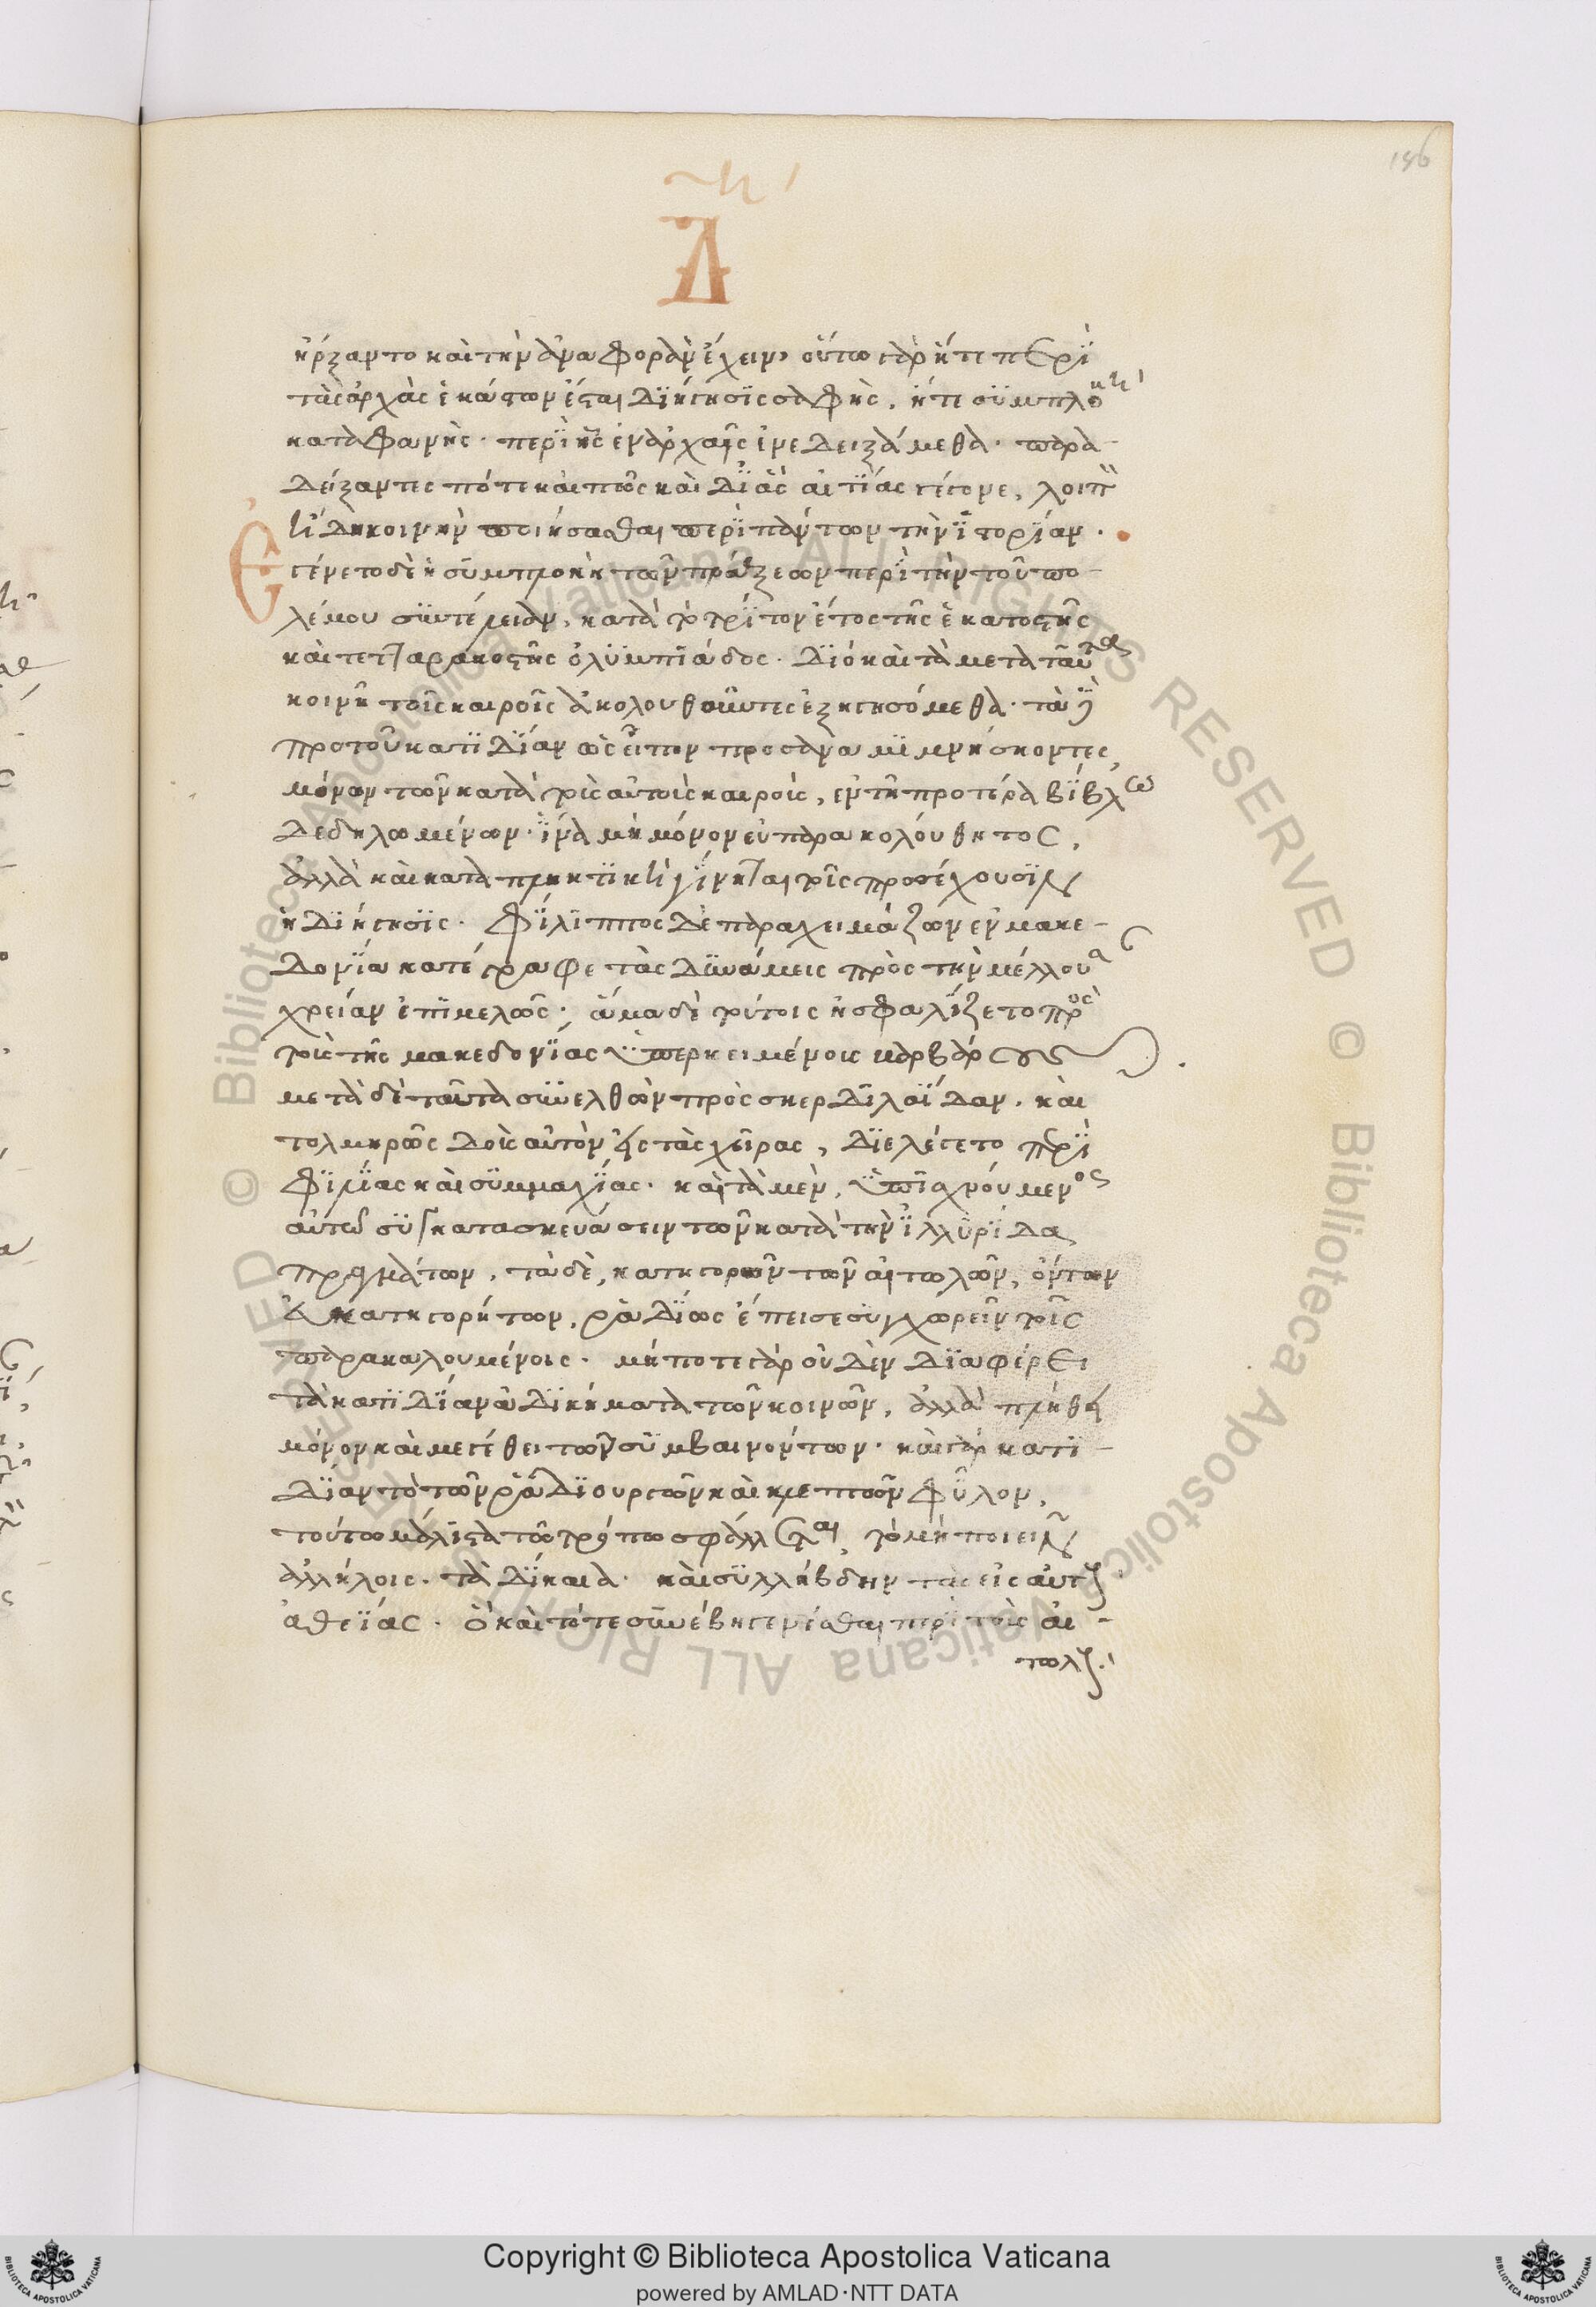 156
Δ
ἤρξαντο καὶ τὴν ἀναφορὰν ἔχειν· οὕτω γὰρ ἥ τε περὶ
τὰς ἀρχὰς ἑκάστων ἔσται διήγησις σαφὴς, ἥ τε συμπλοκὴ
καταφανής· περὶ ἧς ἐν ἀρχαῖς ἐνεδειξάμεθα· παρα-
δείξαντες πότε καὶ πῶς καὶ δι' ἃς αἰτίας γέγονε, λοιπὸν
ἤδη κοινὴν ποιήσασθαι περὶ πάντων τὴν ἱστορίαν.
Ἐγένετο δὲ ἡ συμπλοκὴ τῶν πράξεων περὶ τὴν τοῦ πο-
λέμου συντέλειαν, κατὰ τὸ τρίτον ἔτος τῆς ἑκατοστῆς
καὶ τετταρακοστῆς ὀλυμπιάδος· διὸ καὶ τὰ μετὰ ταῦτα
κοινῇ τοῖς καιροῖς ἀκολουθοῦντες ἐξηγησόμεθα· τὰ δὲ
πρὸ τοῦ κατιδίαν ὡς εἶπον προσαναμιμνήσκοντες
μόνον τῶν κατὰ τοὺς αὐτοὺς καιροὺς, ἐν τῇ προτέρα βίβλω
δεδηλωμένων· ἵνα μὴ μόνον εὐπαρακολούθητος,
ἀλλὰ καὶ καταπληκτικὴ γίνηται τοῖς προσέχουσιν
ἡ διήγησις. Φίλιππος δὲ παραχειμάζων ἐν μακε-
δονία κατέγραφε τὰς δυνάμεις πρὸς τὴν μέλλουσαν
χρείαν ἐπιμελῶς· ἅμα δὲ τούτοις ἠσφαλίζετο πρὸς
τοὺς τῆς μακεδονίας ὑπερκειμένους βαρβάρους.
μετὰ δὲ ταῦτα συνελθὼν πρὸς σκερδιλαΐδαν, καὶ
τολμηρῶς δοὺς αὑτὸν εἰς τὰς χεῖρας, διελέγετο περὶ
φιλίας καὶ συμμαχίας· καὶ τὰ μὲν, ὑπισχνούμενος
αὐτῶ συγκατασκευάσειν τῶν κατὰ τὴν ἰλλυρίδα
πραγμάτων, τὰ δὲ, κατηγορῶν τῶν αἰτωλῶν, ὄντων
εὐκατηγορήτων, ῥαδίως ἔπεισε συγχωρεῖν τοῖς
παρακαλουμένοις. μήποτε γὰρ οὐδὲν διαφέρει
τὰ κατιδίαν ἀδικήματα τῶν κοινῶν, ἀλλὰ πλήθει
μόνον καὶ μεγέθει τῶν συμβαινόντων· καὶ γὰρ κατι-
δίαν τὸ τῶν ῥαδιουργῶν καὶ κλεπτῶν φῦλον,
τούτω μάλιστα τῶ τρόπω σφάλλεται, τὸ μὴ ποιεῖν
ἀλλήλοις τὰ δίκαια· καὶ συλλήβδην τὰς εἰς αὑτοὺς
ἀθεσίας. Ὃ καὶ τότε συνέβη γενέσθαι περὶ τοὺς αἰ-
τωλούς.
Copyright © Biblioteca Apostolica Vaticana
powered by AMLAD·NTT DATA